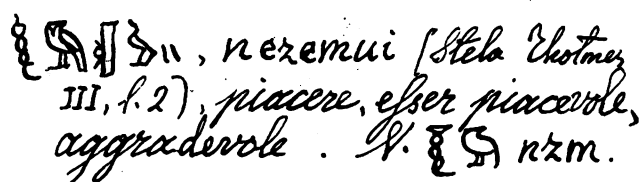 , nezemui (Stela Thotmez
III, l. 2), piacere, esser piacevole,
aggradevole. V. nzm.